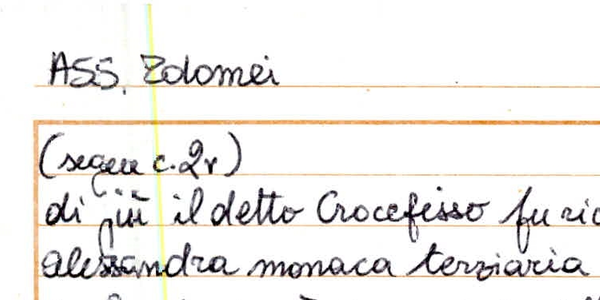 ASS. Zolomei
(segue c. 2r)
di più il detto Crocefisso fu ric
Alessandra monaca terziaria